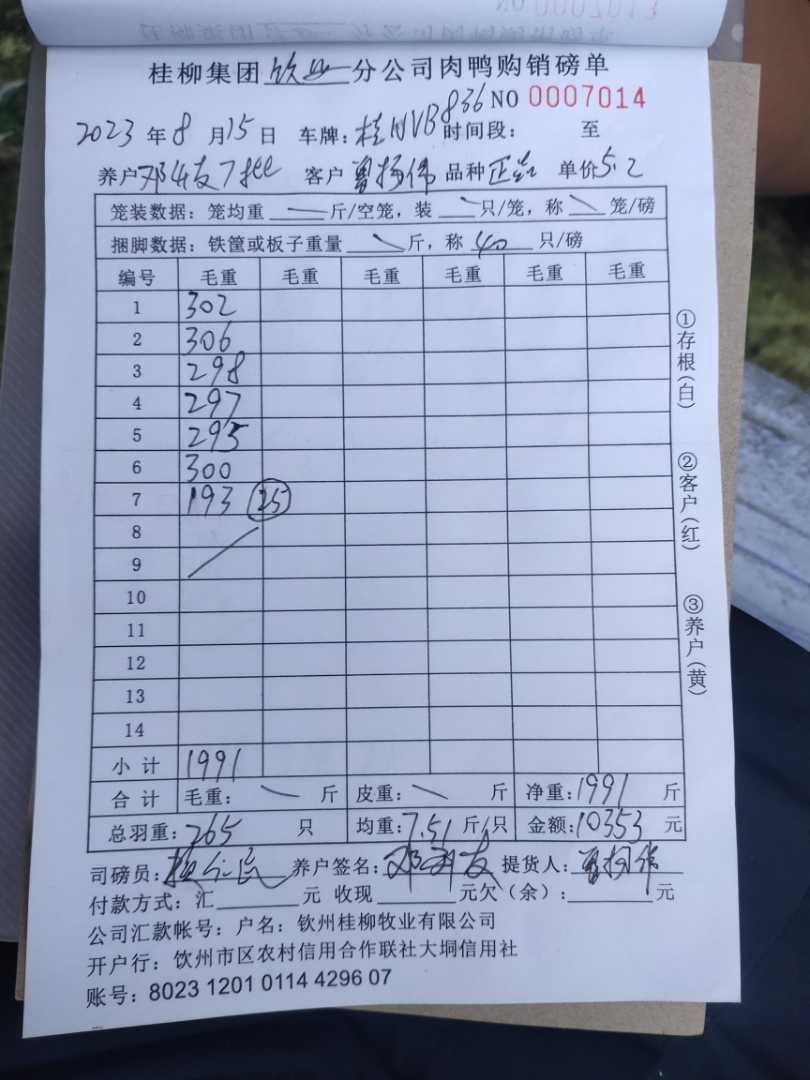 桂柳集团 钦州 分公司肉鸭购销磅单
NO 0007014
2023 年 8 月 15 日 车牌: 桂NVB836 时间段: 至
养户 邓友7批 客户 曾扬伟 品种 单价 5.2
笼装数据: 笼均重 斤/空笼, 装 只/笼, 称 笼/磅
捆脚数据: 铁筐或板子重量 斤, 称 40 只/磅
编号 毛重 毛重 毛重 毛重 毛重 毛重
1 302
2 306
3 298
4 297
5 295
6 300
7 193 25
8
9
10
11
12
13
14
小计 1991
合计 毛重: 斤 皮重: 斤 净重: 1991 斤
总羽重: 265 只 均重: 7.51 斤/只 金额: 10353 元
司磅员: 养户签名: 提货人: 曾扬伟
付款方式: 汇 元 收现 元欠（余）: 元
公司汇款帐号: 户名: 钦州桂柳牧业有限公司
开户行: 饮州市区农村信用合作联社大垌信用社
账号: 8023 1201 0114 4296 07
①存根(白)
②客户(红)
③养户(黄)